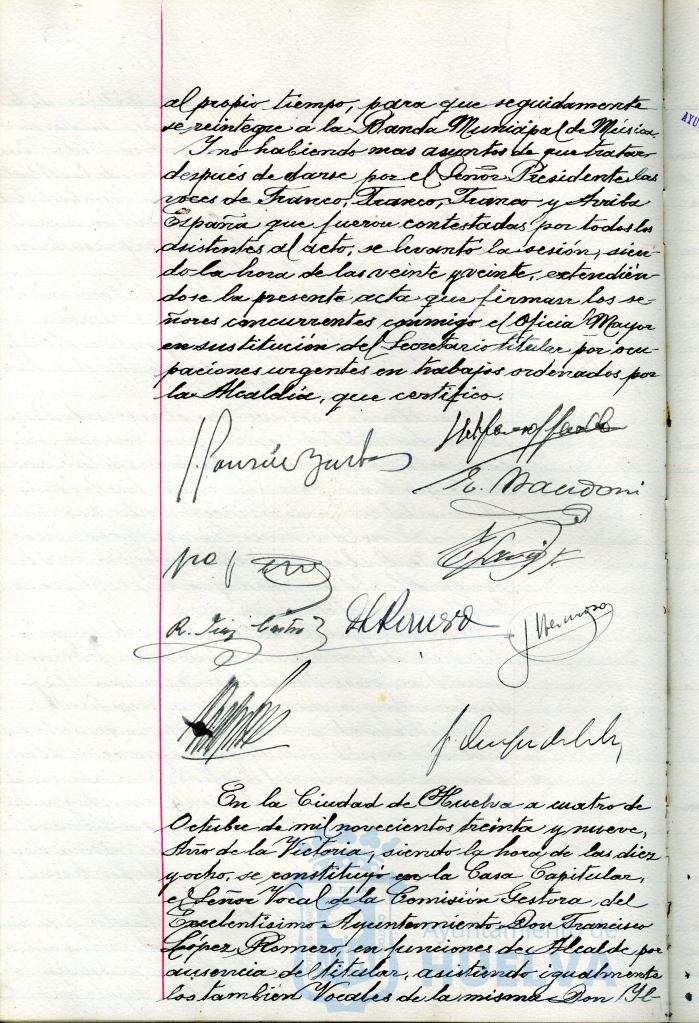 al propio tiempo, para que seguidamente
se reintegre a la Banda Municipal de Música.
Y no habiendo mas asuntos de que tratar
después de darse por el Señor Presidente las
voces de Franco, Franco, Franco y Arriba
España que fueron contestadas por todos los
asistentes al acto, se levantó la sesión, sien-
do la hora de las veinte y veinte, extendién-
dose la presente acta que firman los se-
ñores concurrentes conmigo el Oficial Mayor
en sustitución del Secretario titular por ocu-
paciones urgentes en trabajos ordenados por
la Alcaldía, que certifico.
E. Mandoni
R. Diaz Castro
J Hermoso
En la Ciudad de Huelva a cuatro de
Octubre de mil novecientos treinta y nueve,
Año de la Victoria, siendo la hora de las diez
y ocho, se constituyó en la Casa Capitular,
el Señor Vocal de la Comisión Gestora, del
Excelentísimo Ayuntamiento Don Francisco
López Romero, en funciones de Alcalde por
ausencia del titular, asistiendo igualmente
los también Vocales de la misma Don Il-
Ayuntamiento de
HUELVA
AYU